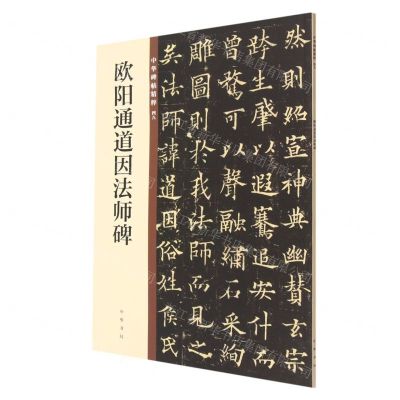 欧阳通道因法师碑
中华碑帖精粹
中华书局
然则绍宣神典幽赞玄宗
跨生肇以遐骞追安什
曾鹜可以聲融繢石采絢
雕圖則於我法師而見之
矣法師諱道因俗姓侯氏